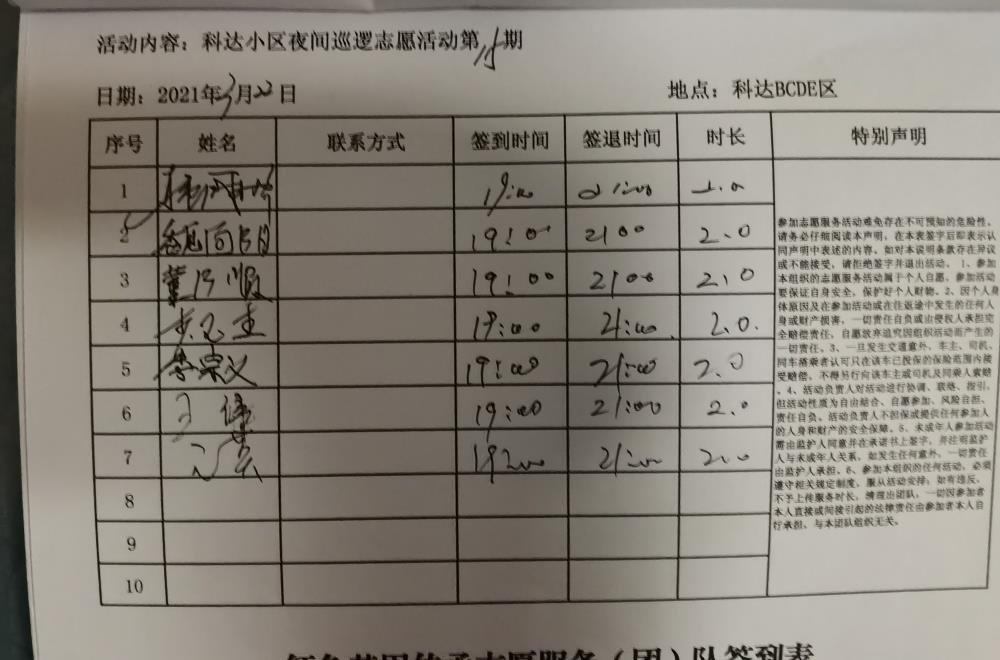 活动内容：科达小区夜间巡逻志愿活动第 期
日期：2021年3月22日
地点：科达BCDE区
序号 姓名 联系方式 签到时间 签退时间 时长 特别声明
1 19:00 21:00 2.0
2 19:00 2100 2.0
3 董 顺 19:00 2100 2.0
4 19:00 21:00 2.0.
5 李宗义 19:00 21:00 2.0
6 19:00 21:00 2.0
7 19:00 21:00 2.0
8
9
10
参加志愿服务活动难免存在不可预知的危险性。
请务必仔细阅读本声明，在本表签字后即表示认
同声明中表述的内容。如对本说明条款存在异议
或不能接受，请拒绝签字并退出活动。1、参加
本组织的志愿服务活动属于个人自愿，参加活动
要保证自身安全，保护好个人财物。2、因个人身
体原因及在参加活动或在往返途中发生的任何人
身或财产损害，一切责任自负或由侵权人承担完
全赔偿责任，自愿放弃追究因组织活动而产生的
一切责任。3、一旦发生交通意外，车主、司机、
同车搭乘者认可只在该车已投保的保险范围内接
受赔偿，不得另行向该车主或司机及同乘人索赔
。4、活动负责人对活动进行协调、联络、指引，
但活动性质为自由结合、自愿参加、风险自担、
责任自负。活动负责人不担保或提供任何参加人
的人身和财产的安全保障。5、未成年人参加活动
需由监护人同意并在承诺书上签字，并注明监护
人与未成年人关系，如发生任何意外，一切责任
由监护人承担。6、参加本组织的任何活动，必须
遵守相关规定制度，服从活动安排；如有违反，
不予上传服务时长，清理出团队，一切因参加者
本人直接或间接引起的法律责任由参加者本人自
行承担，与本团队组织无关。
志愿服务（团）队签到表